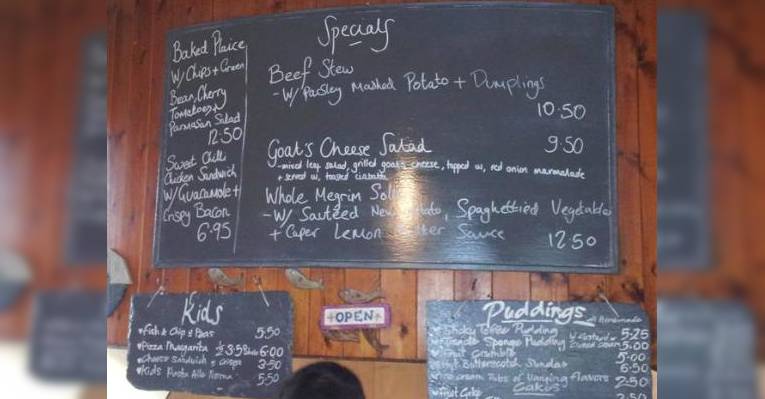 Baked Plaice
W/ Chips + Green
Bean, Cherry
Tomatoes +
Parmasan Salad
12.50
Sweet Chilli
Chicken Sandwich
W/ Guacamole +
Crispy Bacon
6.95
Specials
Beef Stew
- W/ Parsley Mashed Potato + Dumplings
10.50
Goat's Cheese Salad 9.50
- mixed leaf salad, grilled goats cheese, topped w, red onion marmalade
+ served w, toasted ciabatta
Whole Megrim Sole
- W/ Sauteed New Potato, Spaghettied Vegetable
+ Caper Lemon Butter Sauce 12.50
Kids
Fish & Chip & Peas 5.50
Pizza Margarita 1/2 3.50 6.00
Cheese Sandwich + crisps 3.50
Kids Pasta 5.50
OPEN
Puddings
all Homemade
Sticky Toffee Pudding 5.25
Sponge Pudding W Custard 5.00
Fruit Crumble 5.00
Butterscotch Sundae 6.50
Ice cream Tubs of Varying flavors 2.50
Cakes
Fruit Cake 2.50